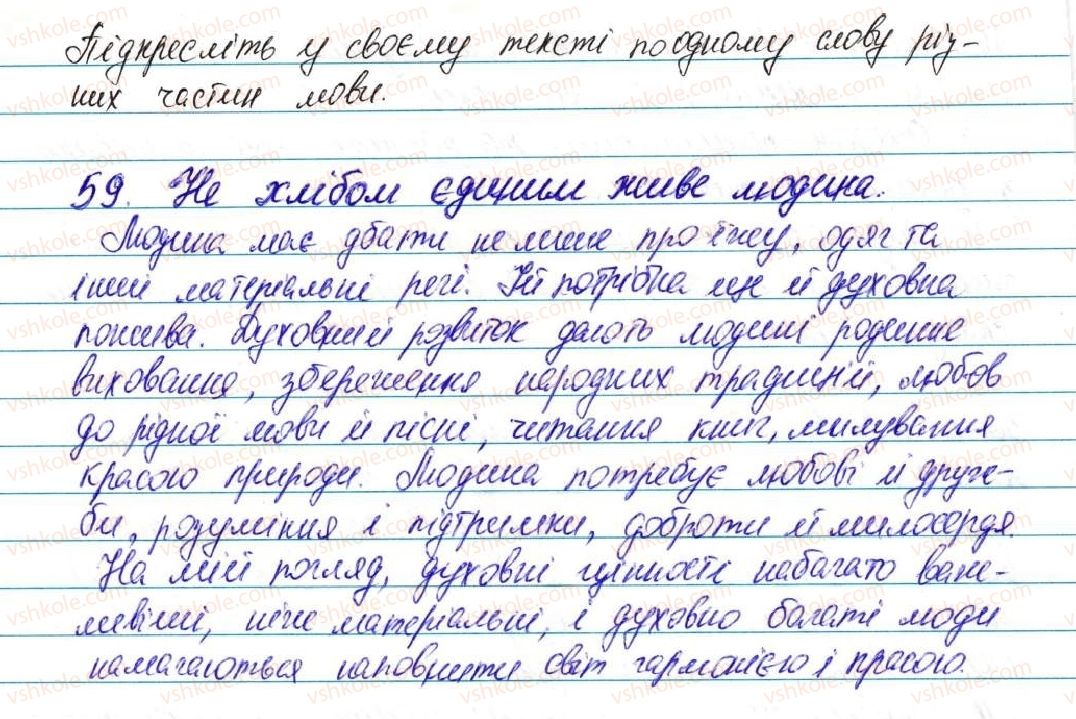 Підкресліть у своєму тексті по одному слову різ-
них частин мови.
59. Не хлібом єдиним живе людина.
Людина має дбати не лише про їжу, одяг та
інші матеріальні речі. Їй потрібна ще й духовна
пожива. Духовний розвиток дають людині родинне
виховання, збереження народних традицій, любов
до рідної мови й пісні, читання книг, милування
красою природи. Людина потребує любові й друж-
би, розуміння і підтримки, доброти й милосердя.
На мій погляд, духовні цінності набагато важ-
ливіші, ніж матеріальні, і духовно багаті люди
намагаються наповнити світ гармонією і красою.
vshkole.com